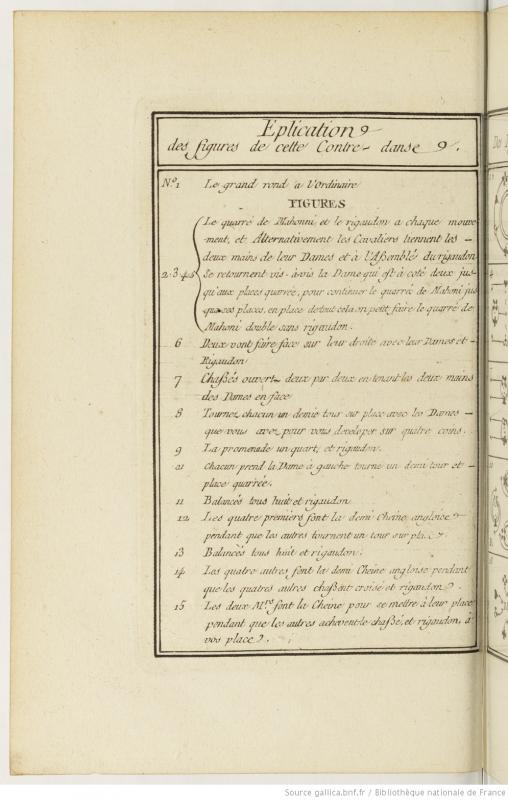 Eplication
des figures de cette Contre-danse.
N.º 1 Le grand rond a l'Ordinaire
FIGURES
Le quarré de Mahonni et le rigaudon a chaque mouve-
ment, et Alternativement les Cavaliers tiennent les
deux mains de leur Dames et à l'Assemblé du rigaudon
2·3·4·5 Se retournent vis-à-vis la Dame qui est à coté deux jus-
qu'aux places quarrée, pour continuer le quarreé de Mahoni jus
ques places, en place de tout cela on petit faire le quarré de
Mahoni double sans rigaudon.
6 Deux vont faire face sur leur droite avec leur Dames et
Rigaudon
7 Chaßés ouvert deux par deux en tenant les deux mains
des Dames en face
8 Tournez chacun un demie tour sur place avec les Dames
que vous avez pour vous developer sur quatre coins.
9 La promenade un quart, et rigaudon.
Chacun prend la Dame à gauche tourne un demi tour et
place quarrée.
11 Balancés tous huit et rigaudon
12 Les quatre premiers font la demi Cheine angloise
pendant que les autres tournent un tour sur place.
13 Balancés tous huit et rigaudon.
14 Les quatre autres font la demi Cheine angloise pendant
que les quatres autres chaßent croisé et rigaudon.
15 Les deux M.rs font la Cheine pour se mettre à leur place
pendant que les autres achevent le chaßé, et rigaudon, a
vos place.
Source gallica.bnf.fr / Bibliothèque nationale de France